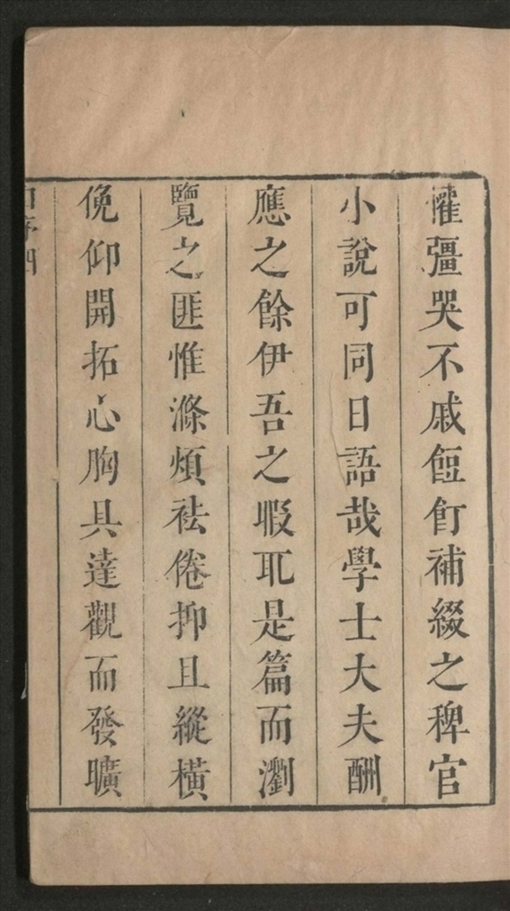 懽彊哭不戚䬦飣補綴之稗官
小說可同日語哉學士大夫酬
應之餘伊吾之暇玐是篇而瀏
覽之匪惟滌煩祛倦抑且縱橫
俛仰開拓心胸具達觀而發曠
序四